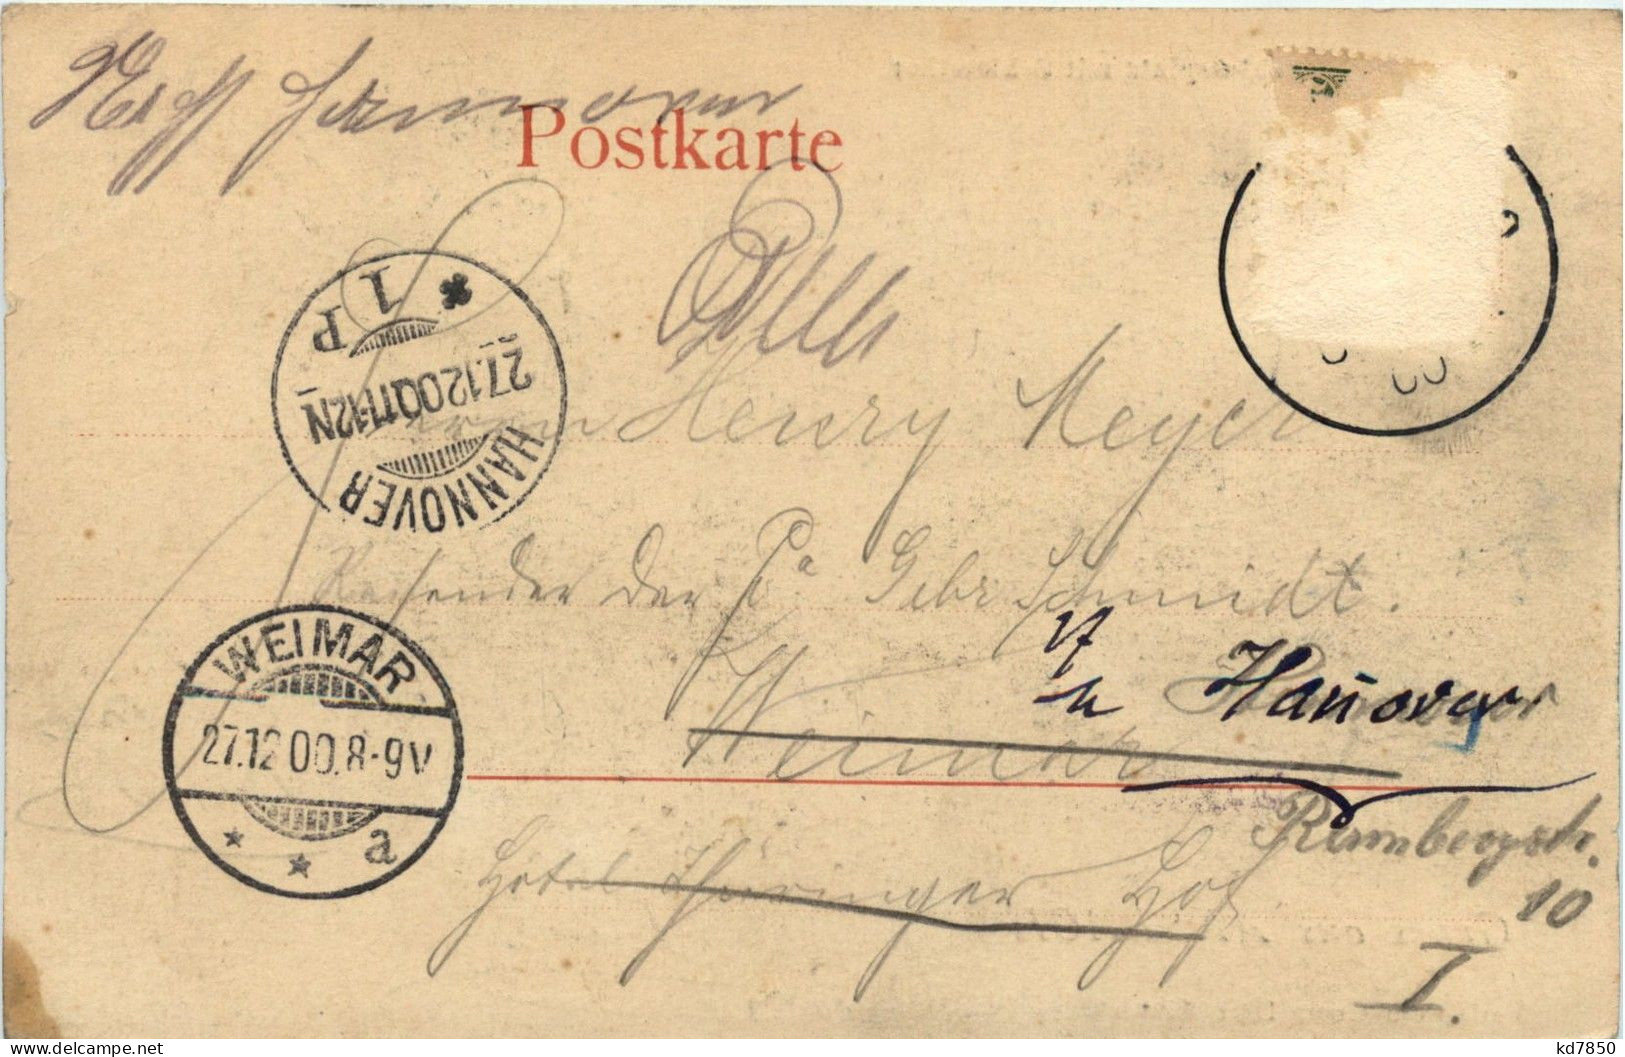 Hannover
Postkarte
* 1 P
27.12 00 11-12N
HANNOVER
Herrn Henry Meyer
Reisender der Fa Gebr. Schmidt.
WEIMAR
27.12 00. 8-9V
* * a
Hannover
Weimar
Rumbergstr.
10
Hotel Thüringer Hof
I.
kd7850